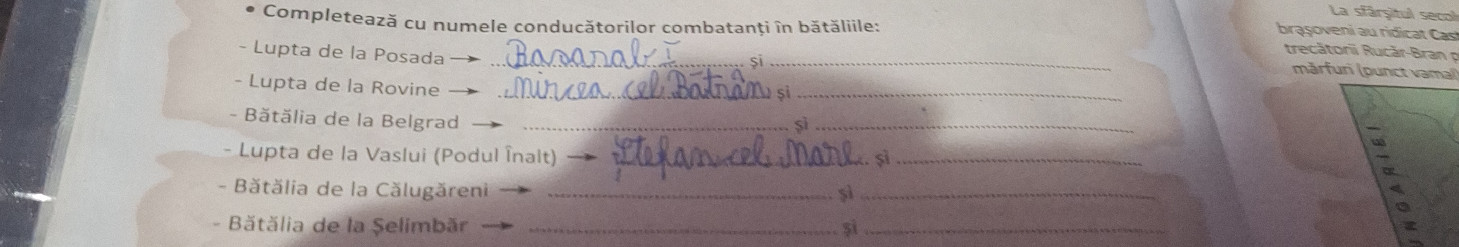 • Completează cu numele conducătorilor combatanți în bătăliile:
- Lupta de la Posada → Basarab I și
- Lupta de la Rovine → Mircea cel Bătrân și
- Bătălia de la Belgrad → și
- Lupta de la Vaslui (Podul Înalt) → Ștefan cel Mare și
- Bătălia de la Călugăreni → și
- Bătălia de la Șelimbăr → și
La sfârșitul secol
brașoveni au ridicat Cast
trecătorii Rucăr-Bran ș
mărfuri (punct vamal)
NGARIEI